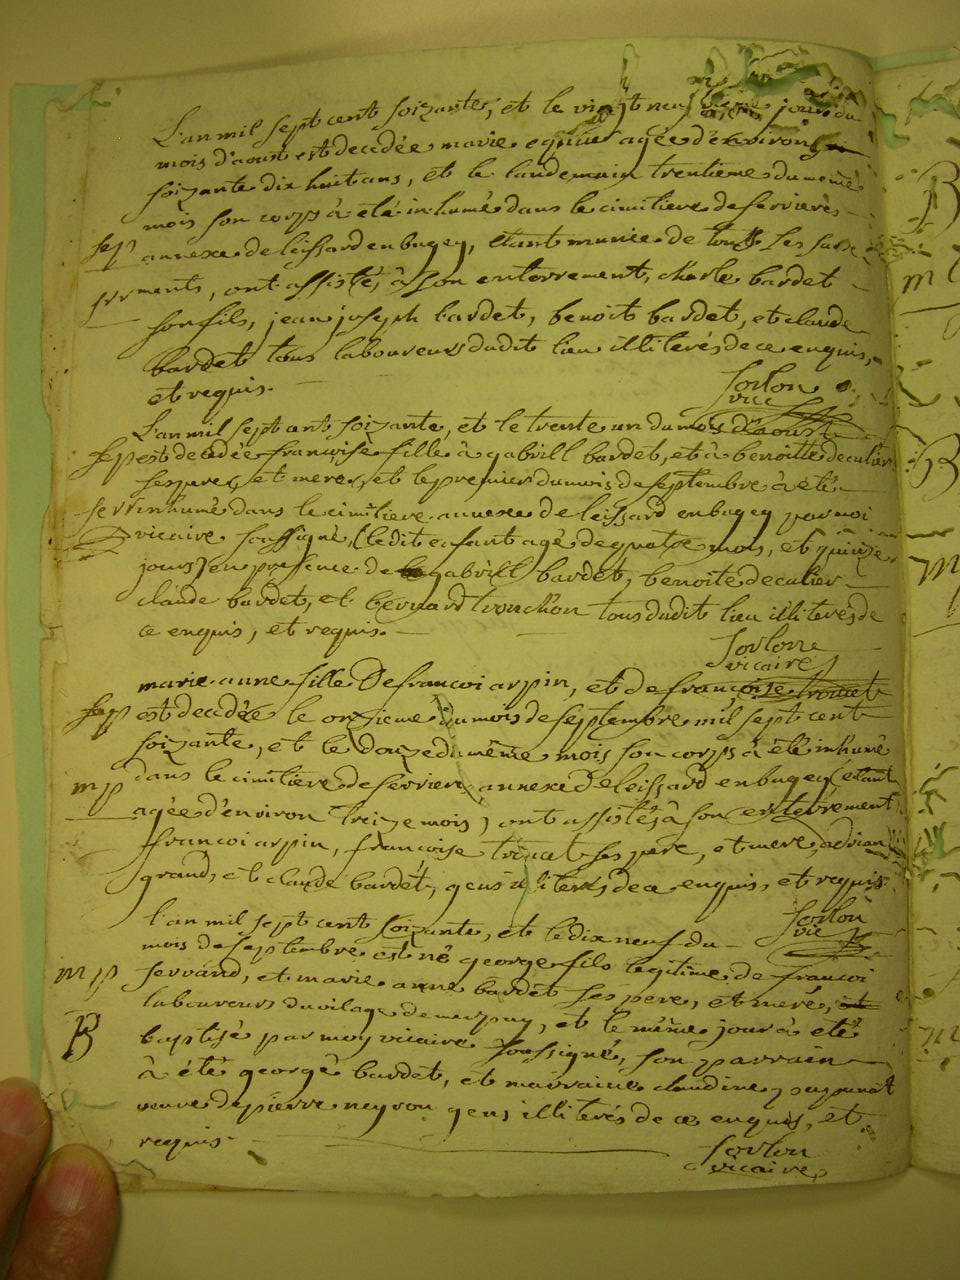 L'an mil sept cent soizante, et le vingt neuvieme jour du
mois d'aout est decedée marie agée d'environ
soizante dix huit ans, et le landemain trentieme du meme
mois son corps à été inhumé dans le cimitiere de serrieres
sep annexe de leissard en bugey, etant munie de touts les sacre
ments, ont assisté, à son enterrement, charle bardet
son fils, jean joseph bardet, benoit bardet, et claude
bardet tous laboureurs dudit lieu illiterés de ce enquis,
et requis.
Sorlon
vice
L'an mil sept cent soizante, et le trente un du mois d'aoust
sep est decedée françoise fille à gabriell bardet, et à benoitte decula
ses pere, et mere, et le premier du mois de septembre à eté
inhumé dans le cimitiere annexe de leissard en bugey par moi
vicaire soussigné, (ledit enfant agé de quatre mois, et quinze
jours) en presence de gabriell bardet, benoite
claude bardet, et bernard tous dudit lieu illiterés de
ce enquis, et requis.
Sorlon
vicaire
marie anne fille de francoi arpin, et de françoise
sep est decedée le onzieme du mois de septembre mil sept cent
soizante, et le douze du même mois son corps à été inhumé
mp dans le cimitiere de serriere annexe de leissard en bugey (etant
agées d'environ treize mois) ont assistés à son enterrement
francoi arpin, françoise ses pere, et mere, adrian
grand, et claude bardet, gens illiterés de ce enquis, et requis.
Sorlon
vic
l'an mil sept cent soizante, et le dix neuf du
mois de septembre est né george fils legitime de francoi
mp servand, et marie anne bardet ses pere, et mere,
laboureurs du vilage de, et le même jour à eté
B baptisé par moy vicaire soussigné, son parrain
à été george bardet, et marraine claudine
veuve de pierre neyron gens illiterés de ce enquis, et
requis.
Sorlon
vicaire
B
m
B
m